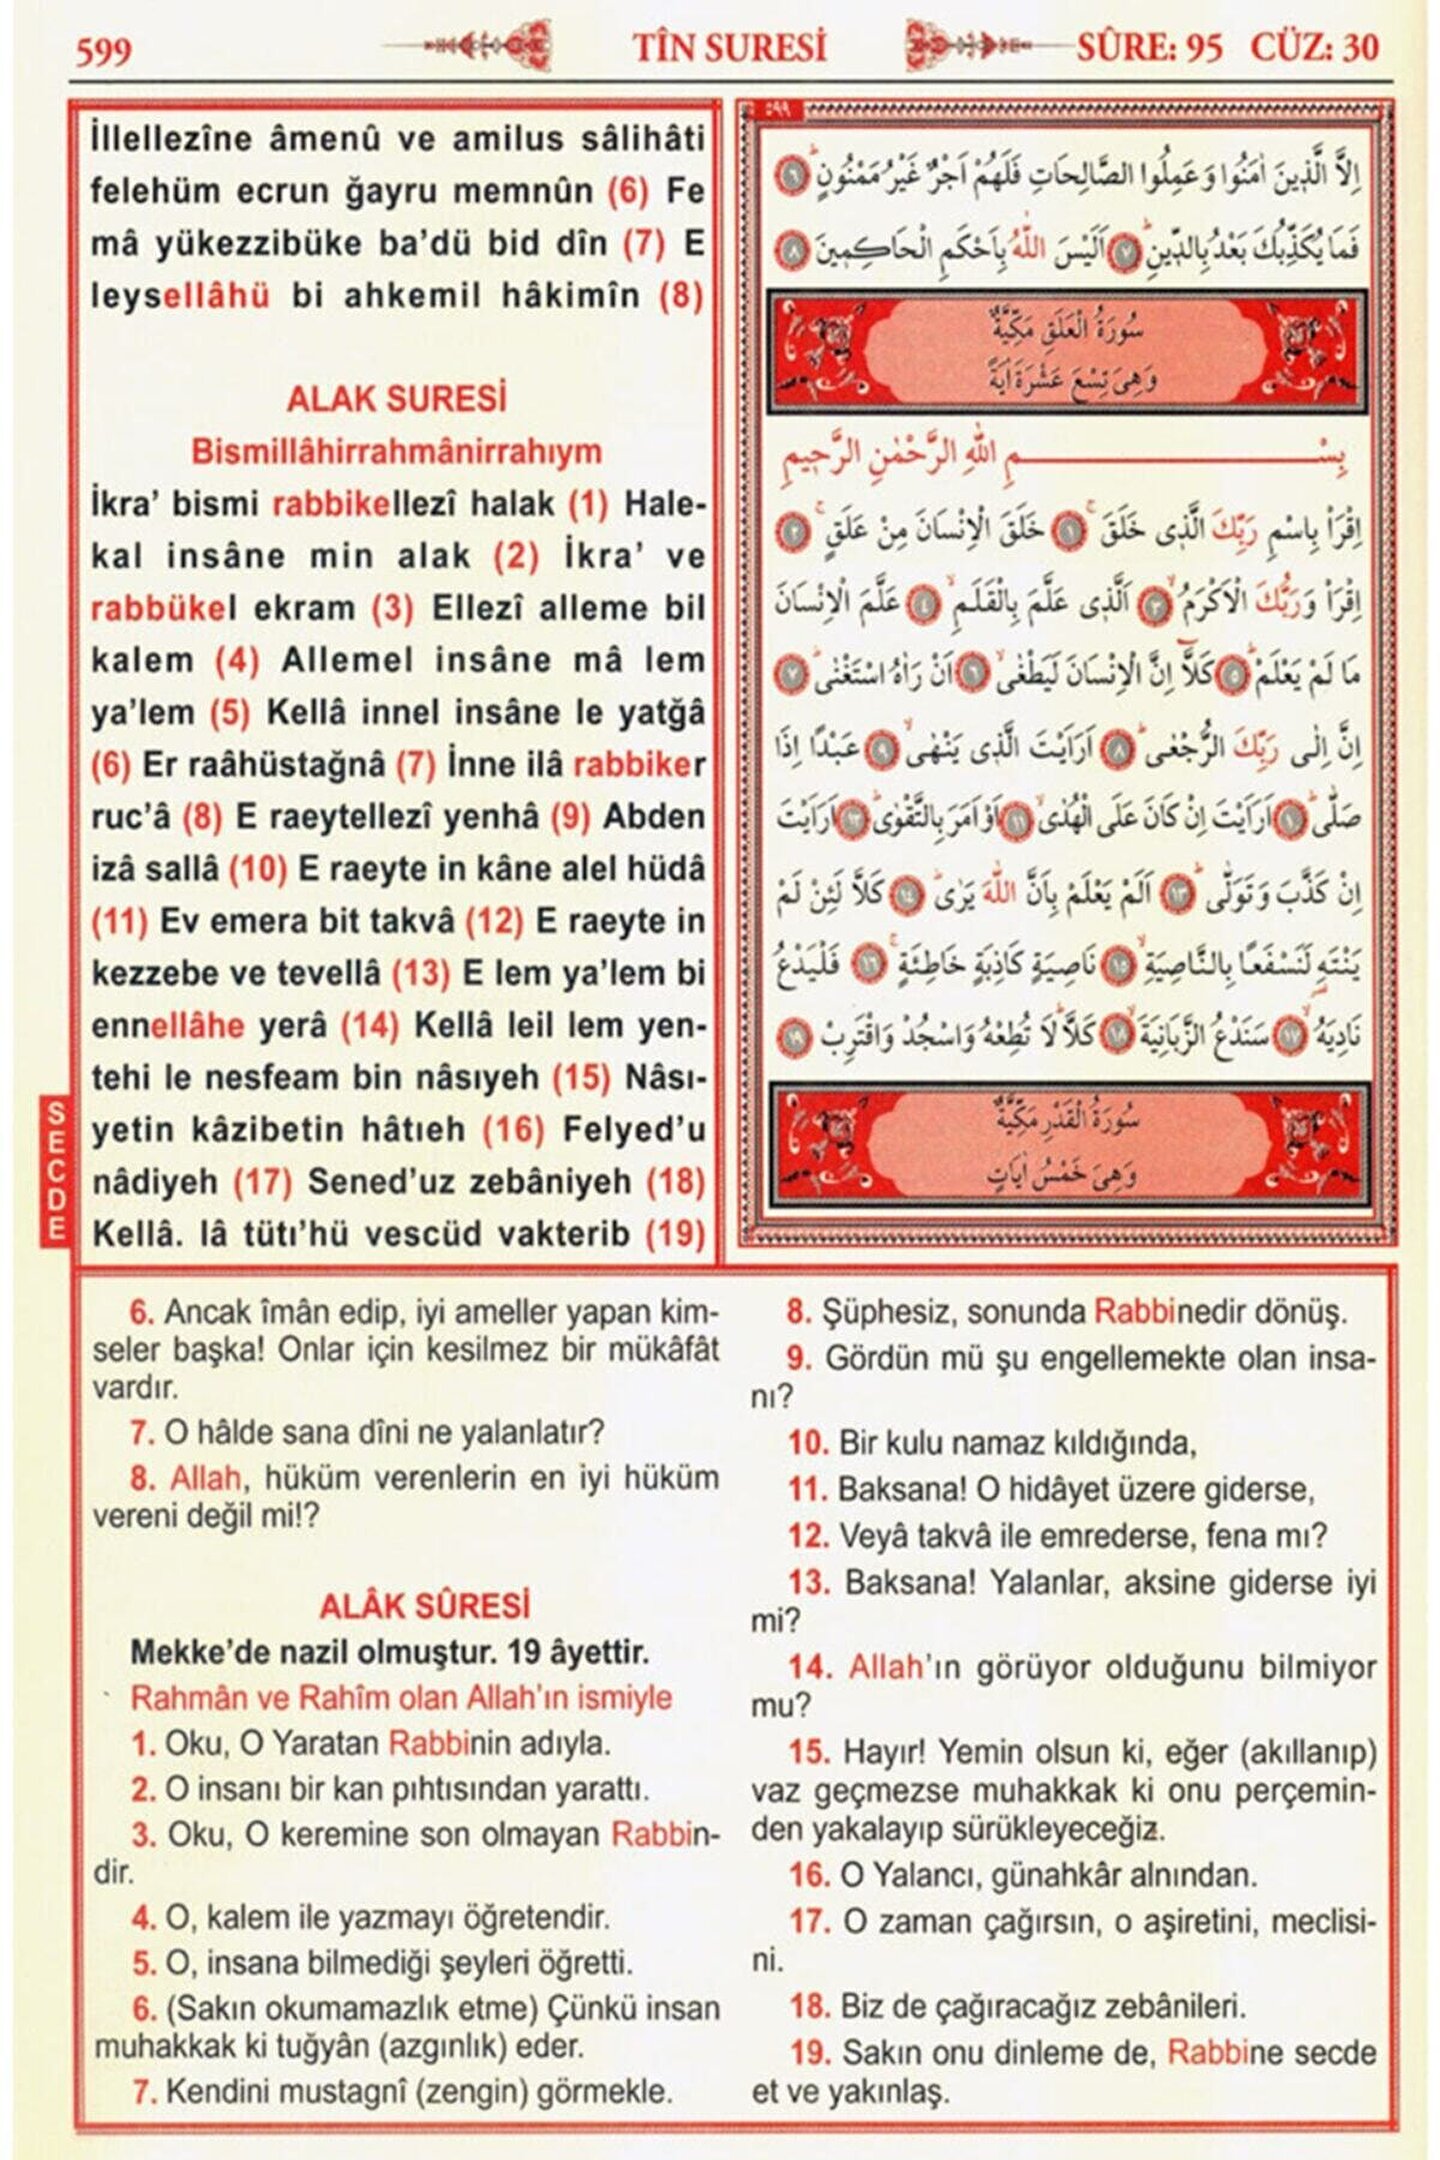 599
TÎN SURESİ
SÛRE: 95 CÜZ: 30
İllellezîne âmenû ve amilus sâlihâti
felehüm ecrun ğayru memnûn (6) Fe
mâ yükezzibüke ba’dü bid dîn (7) E
leysellâhü bi ahkemil hâkimîn (8)
ALAK SURESİ
Bismillâhirrahmânirrahıym
İkra’ bismi rabbikellezî halak (1) Hale-
kal insâne min alak (2) İkra’ ve
rabbükel ekram (3) Ellezî alleme bil
kalem (4) Allemel insâne mâ lem
ya’lem (5) Kellâ innel insâne le yatğâ
(6) Er raâhüstağnâ (7) İnne ilâ rabbiker
ruc’â (8) E raeytellezî yenhâ (9) Abden
izâ sallâ (10) E raeyte in kâne alel hüdâ
(11) Ev emera bit takvâ (12) E raeyte in
kezzebe ve tevellâ (13) E lem ya’lem bi
ennellâhe yerâ (14) Kellâ leil lem yen-
tehi le nesfeam bin nâsıyeh (15) Nâsı-
yetin kâzibetin hâtıeh (16) Felyed’u
nâdiyeh (17) Sened’uz zebâniyeh (18)
Kellâ. lâ tütı’hü vescüd vakterib (19)
SECDE
٥٩٩
اِلَّا الَّذ۪ينَ اٰمَنُوا وَعَمِلُوا الصَّالِحَاتِ فَلَهُمْ اَجْرٌ غَيْرُ مَمْنُونٍۜ ﴿٦﴾
فَمَا يُكَذِّبُكَ بَعْدُ بِالدّ۪ينِۜ ﴿٧﴾ اَلَيْسَ اللّٰهُ بِاَحْكَمِ الْحَاكِم۪ينَ ﴿٨﴾
سُورَةُ الْعَلَقِ مَكِّيَّةٌ
وَهِىَ تِسْعَ عَشْرَةَ اٰيَةً
بِسْمِ اللّٰهِ الرَّحْمٰنِ الرَّح۪يمِ
اِقْرَأْ بِاسْمِ رَبِّكَ الَّذ۪ى خَلَقَۚ ﴿١﴾ خَلَقَ الْاِنْسَانَ مِنْ عَلَقٍۚ ﴿٢﴾
اِقْرَأْ وَرَبُّكَ الْاَكْرَمُۙ ﴿٣﴾ اَلَّذ۪ى عَلَّمَ بِالْقَلَمِۙ ﴿٤﴾ عَلَّمَ الْاِنْسَانَ
مَا لَمْ يَعْلَمْۜ ﴿٥﴾ كَلَّٓا اِنَّ الْاِنْسَانَ لَيَطْغٰىۙ ﴿٦﴾ اَنْ رَاٰهُ اسْتَغْنٰىۜ ﴿٧﴾
اِنَّ اِلٰى رَبِّكَ الرُّجْعٰىۜ ﴿٨﴾ اَرَاَيْتَ الَّذ۪ى يَنْهٰىۙ ﴿٩﴾ عَبْدًا اِذَا
صَلّٰىۜ ﴿١٠﴾ اَرَاَيْتَ اِنْ كَانَ عَلَى الْهُدٰىۙ ﴿١١﴾ اَوْ اَمَرَ بِالتَّقْوٰىۜ ﴿١٢﴾ اَرَاَيْتَ
اِنْ كَذَّبَ وَتَوَلّٰىۜ ﴿١٣﴾ اَلَمْ يَعْلَمْ بِاَنَّ اللّٰهَ يَرٰىۜ ﴿١٤﴾ كَلَّا لَئِنْ لَمْ
يَنْتَهِ لَنَسْفَعًا بِالنَّاصِيَةِۙ ﴿١٥﴾ نَاصِيَةٍ كَاذِبَةٍ خَاطِئَةٍۚ ﴿١٦﴾ فَلْيَدْعُ
نَادِيَهُۙ ﴿١٧﴾ سَنَدْعُ الزَّبَانِيَةَۙ ﴿١٨﴾ كَلَّاۜ لَا تُطِعْهُ وَاسْجُدْ وَاقْتَرِبْ ﴿١٩﴾
سُورَةُ الْقَدْرِ مَكِّيَّةٌ
وَهِىَ خَمْسُ اٰيَاتٍ
6. Ancak îmân edip, iyi ameller yapan kim-
seler başka! Onlar için kesilmez bir mükâfât
vardır.
7. O hâlde sana dîni ne yalanlatır?
8. Allah, hüküm verenlerin en iyi hüküm
vereni değil mi!?
ALÂK SÛRESİ
Mekke’de nazil olmuştur. 19 âyettir.
Rahmân ve Rahîm olan Allah’ın ismiyle
1. Oku, O Yaratan Rabbinin adıyla.
2. O insanı bir kan pıhtısından yarattı.
3. Oku, O keremine son olmayan Rabbin-
dir.
4. O, kalem ile yazmayı öğretendir.
5. O, insana bilmediği şeyleri öğretti.
6. (Sakın okumamazlık etme) Çünkü insan
muhakkak ki tuğyân (azgınlık) eder.
7. Kendini mustagnî (zengin) görmekle.
8. Şüphesiz, sonunda Rabbinedir dönüş.
9. Gördün mü şu engellemekte olan insa-
nı?
10. Bir kulu namaz kıldığında,
11. Baksana! O hidâyet üzere giderse,
12. Veyâ takvâ ile emrederse, fena mı?
13. Baksana! Yalanlar, aksine giderse iyi
mi?
14. Allah’ın görüyor olduğunu bilmiyor
mu?
15. Hayır! Yemin olsun ki, eğer (akıllanıp)
vaz geçmezse muhakkak ki onu perçemin-
den yakalayıp sürükleyeceğiz.
16. O Yalancı, günahkâr alnından.
17. O zaman çağırsın, o aşiretini, meclisi-
ni.
18. Biz de çağıracağız zebânileri.
19. Sakın onu dinleme de, Rabbine secde
et ve yakınlaş.